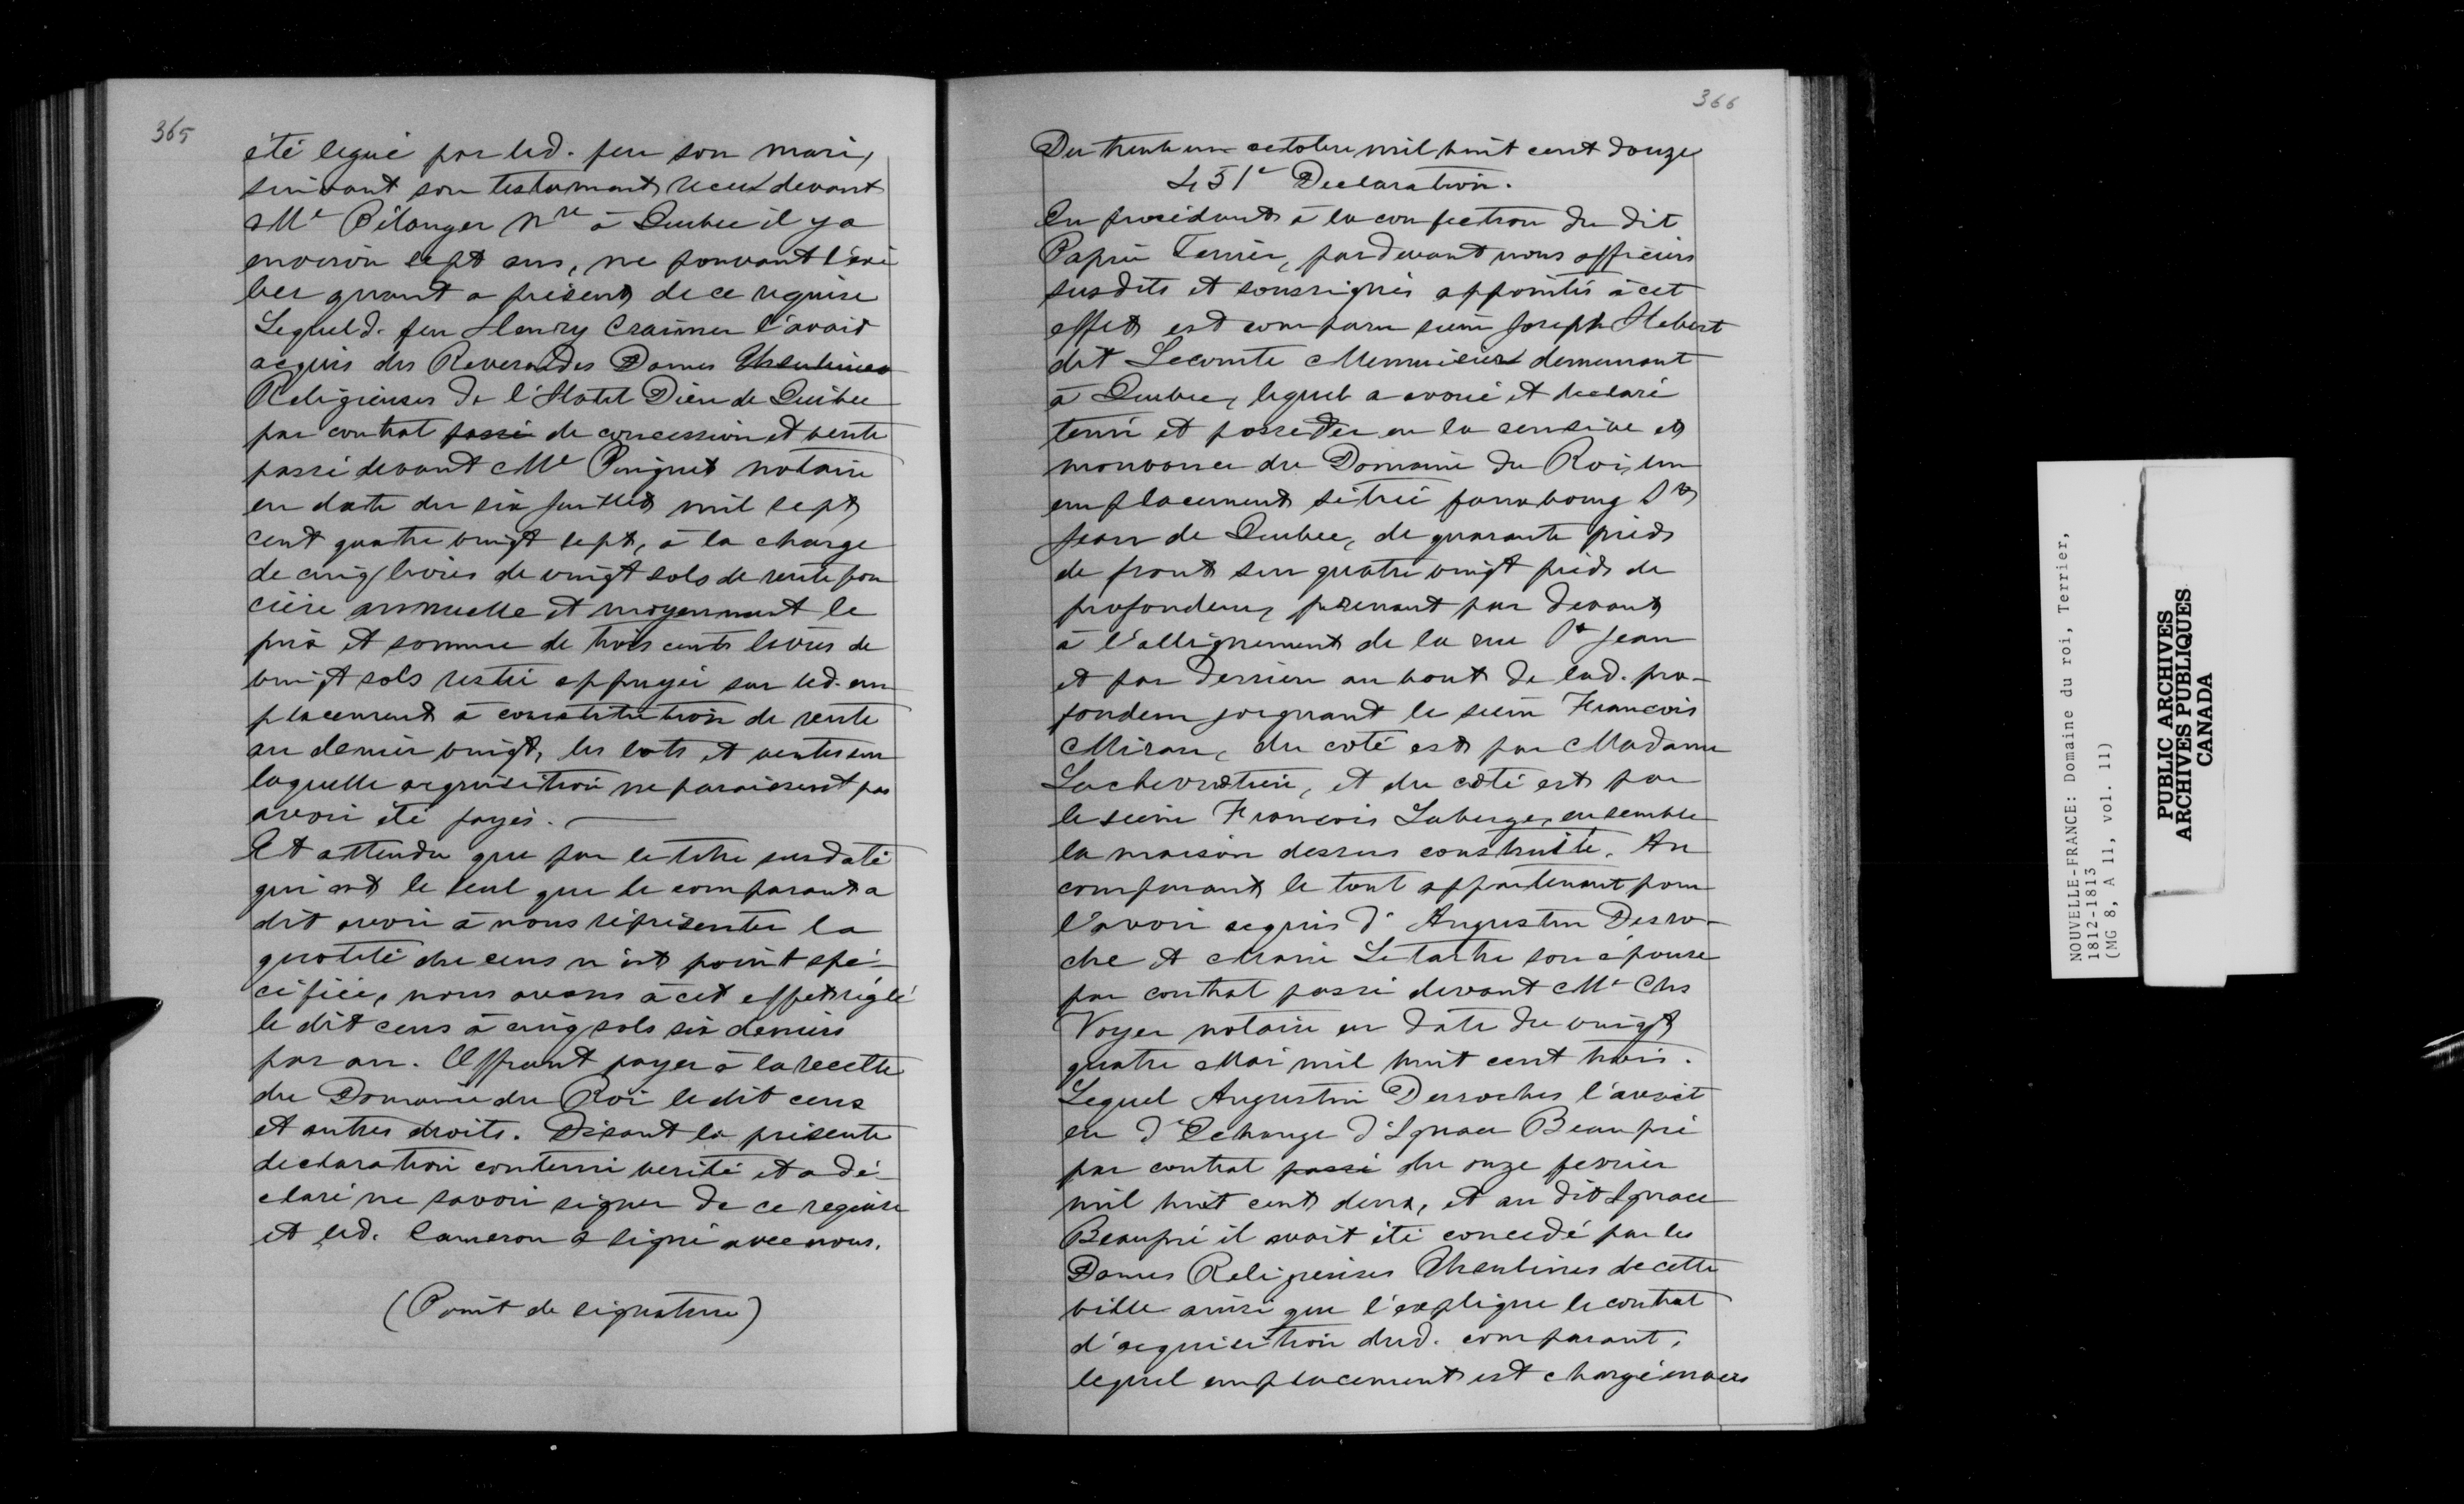 365
été legué par led. feu son mari,
suivant son testament recu devant
Me Bélanger Nre à Quebec il y a
environ sept ans, ne pouvant l'exi
ber quant a présent de ce requise
Lequel d. feu Henry Craimer l'avait
acquis des Reverendes Dames Ursulines
Religieuses de l'Hotel Dieu de Québec
par contrat passé de concession et vente
passé devant Me Pinguet notaire
en date du six juillet mil sept
cent quatre vingt sept, à la charge
de cinq livres de vingt sols de rente fon
cière annuelle et moyennant le
prix et somme de trois cents livres de
vingt sols restée appuyée sur led. em
placement à constitution de rente
au denier vingt, les lots et ventes sur
laquelle acquisition ne paraissent pas
avoir été payés.
Et attendu que par le titre susdaté
qui est le seul que le comparant a
dit avoir à nous réprésenter la
quotité du cens n'est point spé-
cifiée, nous avons à cet effet réglé
le dit cens à cinq sols six deniers
par an. Offrant payer à la recette
du Domaine du Roi le dit cens
et autres droits. Disant la présente
declaration contenir verité et a dé-
claré ne savoir signer de ce requise
et led. Cameron a signé avec nous.
(Point de signature)
366
Du trente un octobre mil huit cent douze
451e Declaration.
En procédant à la confection du dit
Papier Terrier, pardevant nous officiers
susdits et soussignés appointés à cet
effet est comparu sieur Joseph Hebert
dit Lecomte Menuisier demeurant
à Quebec, lequel a avoué et declaré
tenir et posseder en la censive et
mouvance du Domaine du Roi, un
emplacement situé fauxbourg St
Jean de Quebec, de quarante pieds
de front sur quatre vingt pieds de
profondeur, prenant par devant
à l'allignement de la rue St Jean
et par derriere au bout de lad. pro-
fondeur joignant le sieur Francois
Miran, du coté est par Madame
Lachevrotiere, et du coté est par
le sieur Francois Laberge, ensemble
la maison dessus construite. Au
comparant le tout appartenant pour
l'avoir acquis d'Augustin Desro-
che et Marie Letartre son épouse
par contrat passé devant Me Chs
Voyer notaire en date du vingt
quatre Mai mil huit cent trois.
Lequel Augustin Desroches l'avait
eu d'Echange d'Ignace Beaupré
par contrat passé du onze fevrier
mil huit cent deux, et au dit Ignace
Beaupré il avait été concedé par les
Dames Religieuses Ursulines de cette
ville ainsi que l'explique le contrat
d'acquisition dud. comparant,
lequel emplacement est chargé envers
NOUVELLE-FRANCE: Domaine du roi, Terrier,
1812-1813
(MG 8, A 11, vol. 11)
PUBLIC ARCHIVES
ARCHIVES PUBLIQUES
CANADA